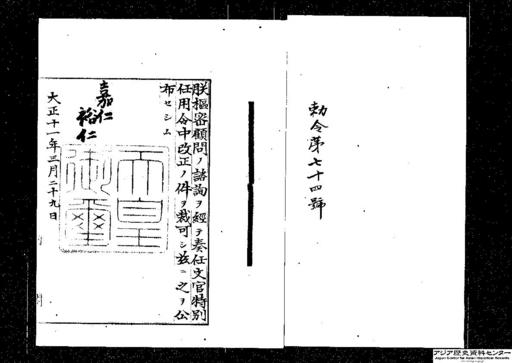 勅令第七十四號
朕樞密顧問ノ諮詢ヲ經テ奏任文官特別
任用令中改正ノ件ヲ裁可シ玆ニ之ヲ公
布セシム
嘉仁
裕仁
天皇
御璽
大正十一年三月二十九日
アジア歴史資料センター
Japan Center for Asian Historical Records